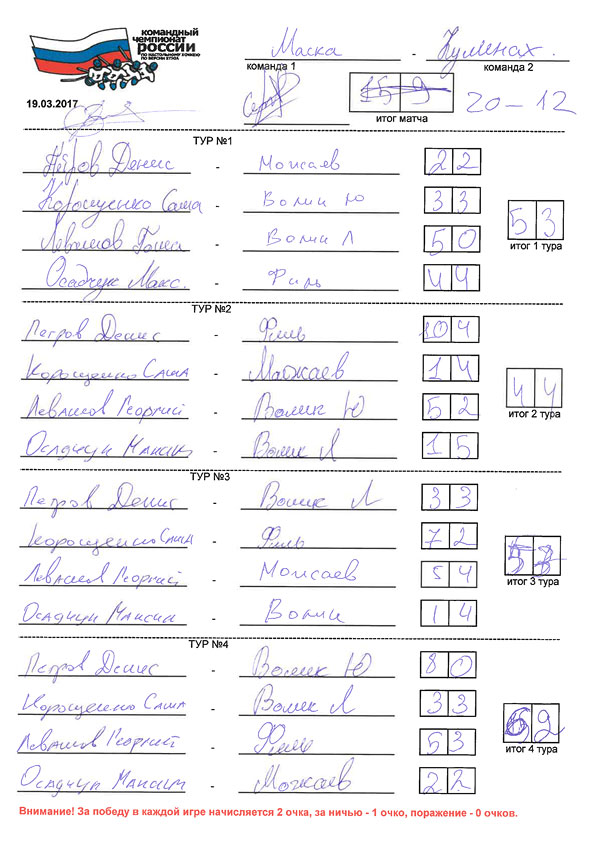 командный
чемпионат
россии
по настольному хоккею
по версии ВТХА
Маска - Кулинах.
команда 1 команда 2
15 9 20-12
19.03.2017
итог матча
ТУР №1
Петров Денис - Можаев 2 2
Корощенко Саша - Волик Ю 3 3
5 3
Левашов Гоша - Волик Л 5 0
итог 1 тура
Осадчук Макс. - Филь 4 4
ТУР №2
Петров Денис - Филь 10 4
Корощенко Саша - Можаев 1 4
4 4
Левашов Георгий - Волик Ю 5 2
итог 2 тура
Осадчук Максим - Волик Л 1 5
ТУР №3
Петров Денис - Волик Л 3 3
Корощенко Саша - Филь 7 2
5
Левашов Георгий - Можаев 5 4
итог 3 тура
Осадчук Максим - Волик 1 4
ТУР №4
Петров Денис - Волик Ю 8 0
Корощенко Саша - Волик Л 3 3
6 2
Левашов Георгий - Филь 5 3
итог 4 тура
Осадчук Максим - Можаев 2 2
Внимание! За победу в каждой игре начисляется 2 очка, за ничью - 1 очко, поражение - 0 очков.